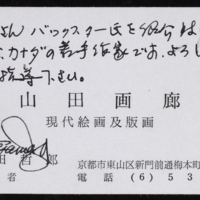 バックスター氏を紹介
カナダの若手作家です。よろし
指導下さい。
山田画廊
現代絵画及版画
田哲郎
者
京都市東山区新門前通梅本町
電話(6)53